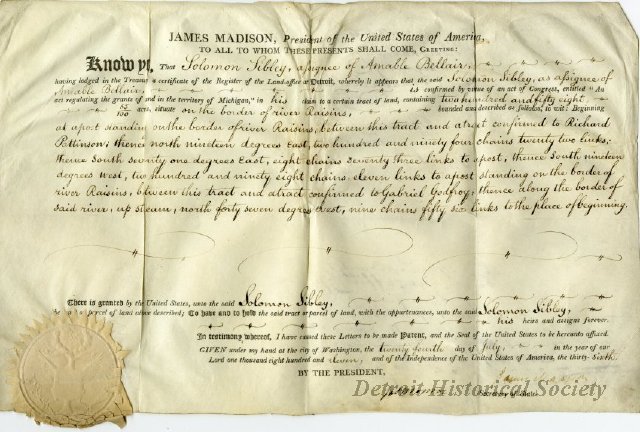 JAMES MADISON, President of the United States of America,
TO ALL TO WHOM THESE PRESENTS SHALL COME, GREETING:
Know ye, That Solomon Sibley, assignee of Amable Bellair,
having lodged in the Treasury a certificate of the Register of the Land-office at Detroit, whereby it appears that the said Solomon Sibley, as assignee of
Amable Bellair is confirmed by virtue of an act of Congress, entitled "An
act regulating the grants of land in the territory of Michigan," in his claim to a certain tract of land, containing two hundred and fifty eight
acres, situate on the border of river Raisins, bounded and described as follows, to wit: Beginning
at a post standing on the border of river Raisins, between this tract and a tract confirmed to Richard
Pattinson; thence north nineteen degrees East, two hundred and ninety four chains twenty two links;
thence South seventy one degrees East, eight chains seventy three links to a post, thence South nineteen
degrees west, two hundred and ninety eight chains eleven links to a post standing on the border of
river Raisins, between this tract and a tract confirmed to Gabriel Godfroy; thence along the border of
said river, up stream, north forty seven degrees West, nine chains fifty six links to the place of beginning.
There is granted by the United States, unto the said Solomon Sibley,
the said parcel of land above described; To have and to hold the said tract or parcel of land, with the appurtenances, unto the said Solomon Sibley,
his heirs and assigns forever.
In testimony whereof, I have caused these Letters to be made Patent, and the Seal of the United States to be hereunto affixed.
GIVEN under my hand at the city of Washington, the twenty fourth day of July, in the year of our
Lord one thousand eight hundred and eleven, and of the Independence of the United States of America, the thirty-sixth
BY THE PRESIDENT,
Secretary of State
Detroit Historical Society